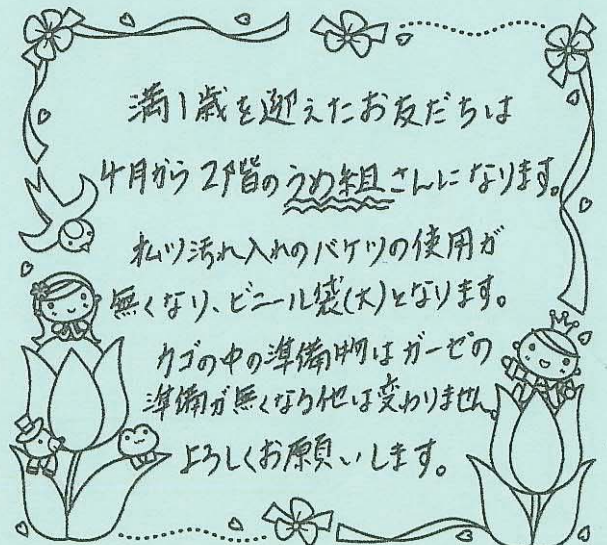 満1歳を迎えたお友だちは
4月から2階のうめ組さんになります。
汚れ入れのバケツの使用が
無くなり、ビニール袋(大)となります。
カゴの中の準備物はガーゼの
準備が無くなる他は変わりません。
よろしくお願いします。